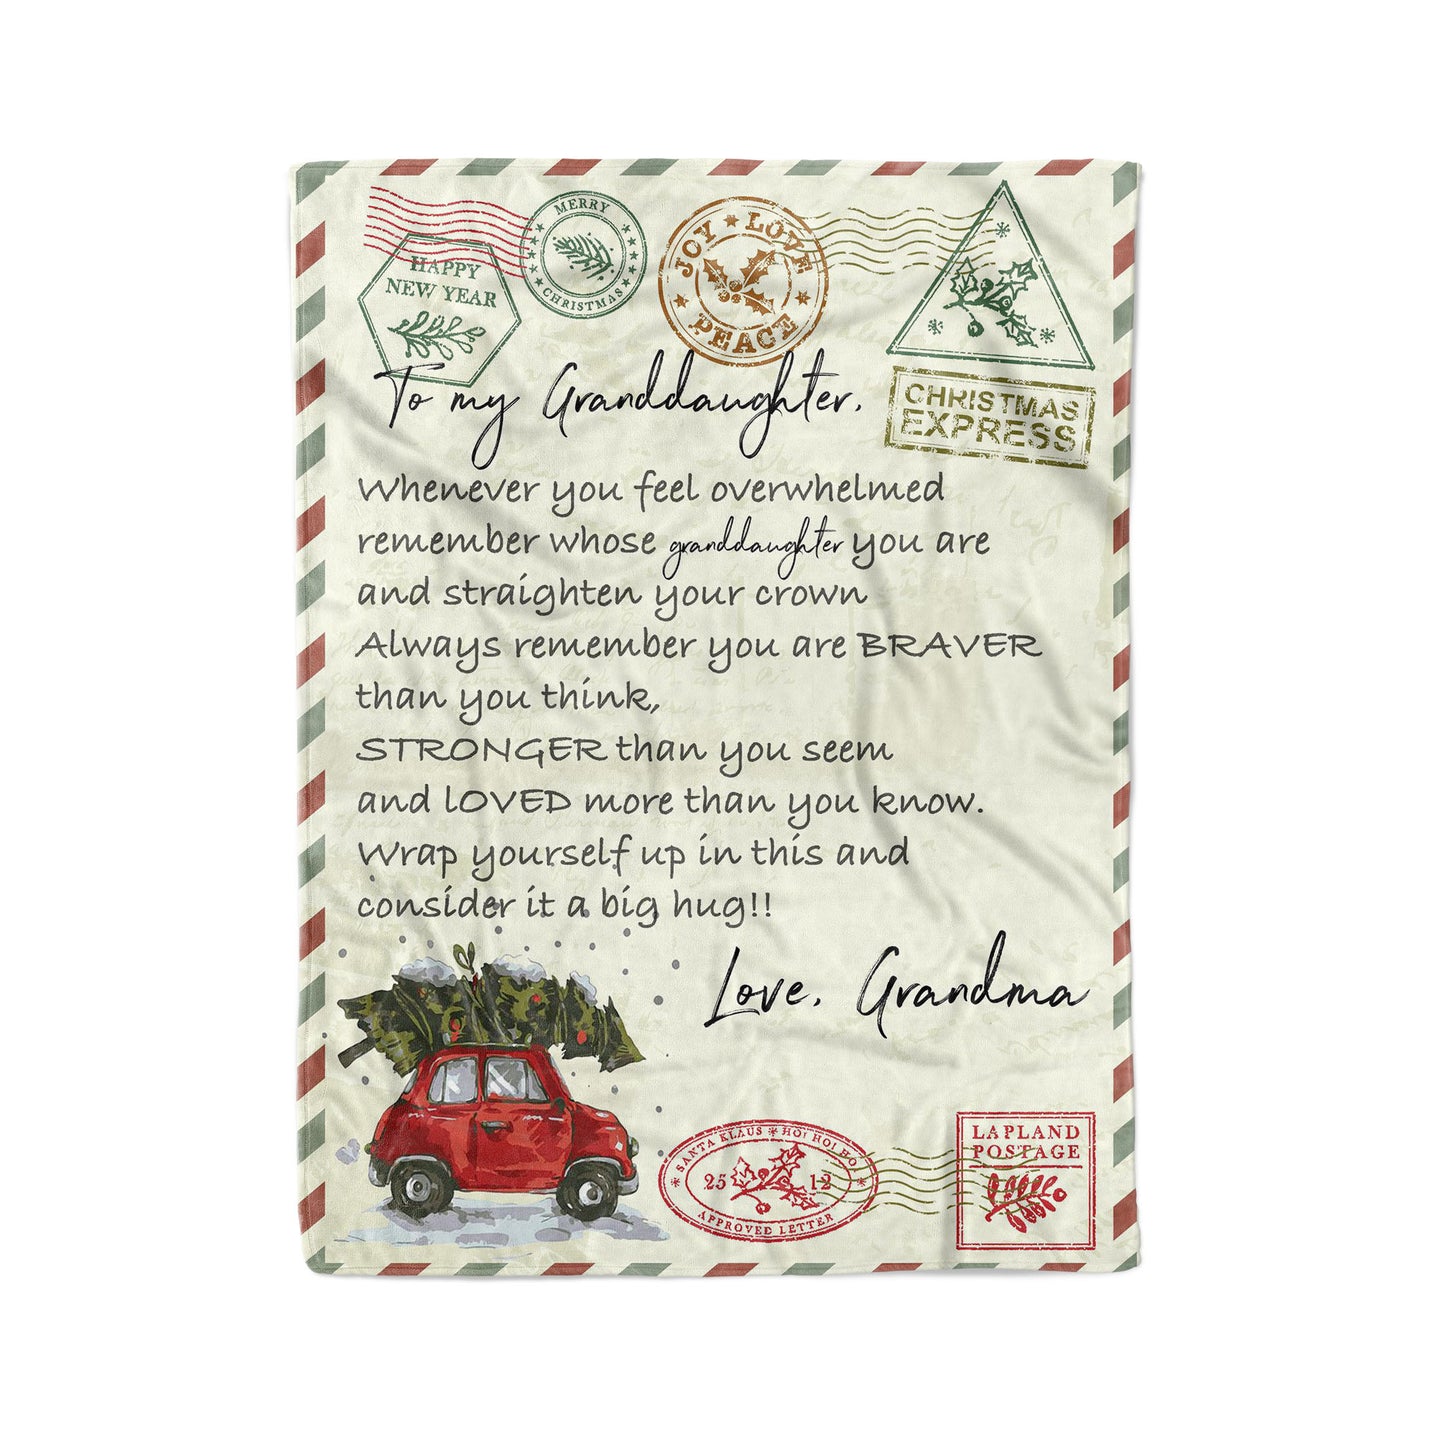 MERRY
CHRISTMAS
HAPPY
NEW YEAR
JOY ★ LOVE
PEACE
CHRISTMAS
EXPRESS
To my Granddaughter,
Whenever you feel overwhelmed
remember whose granddaughter you are
and straighten your crown
Always remember you are BRAVER
than you think,
STRONGER than you seem
and LOVED more than you know.
Wrap yourself up in this and
consider it a big hug!!
Love, Grandma
SANTA KLAUS * HO! HO! HO
25 12
APPROVED LETTER
LAPLAND
POSTAGE